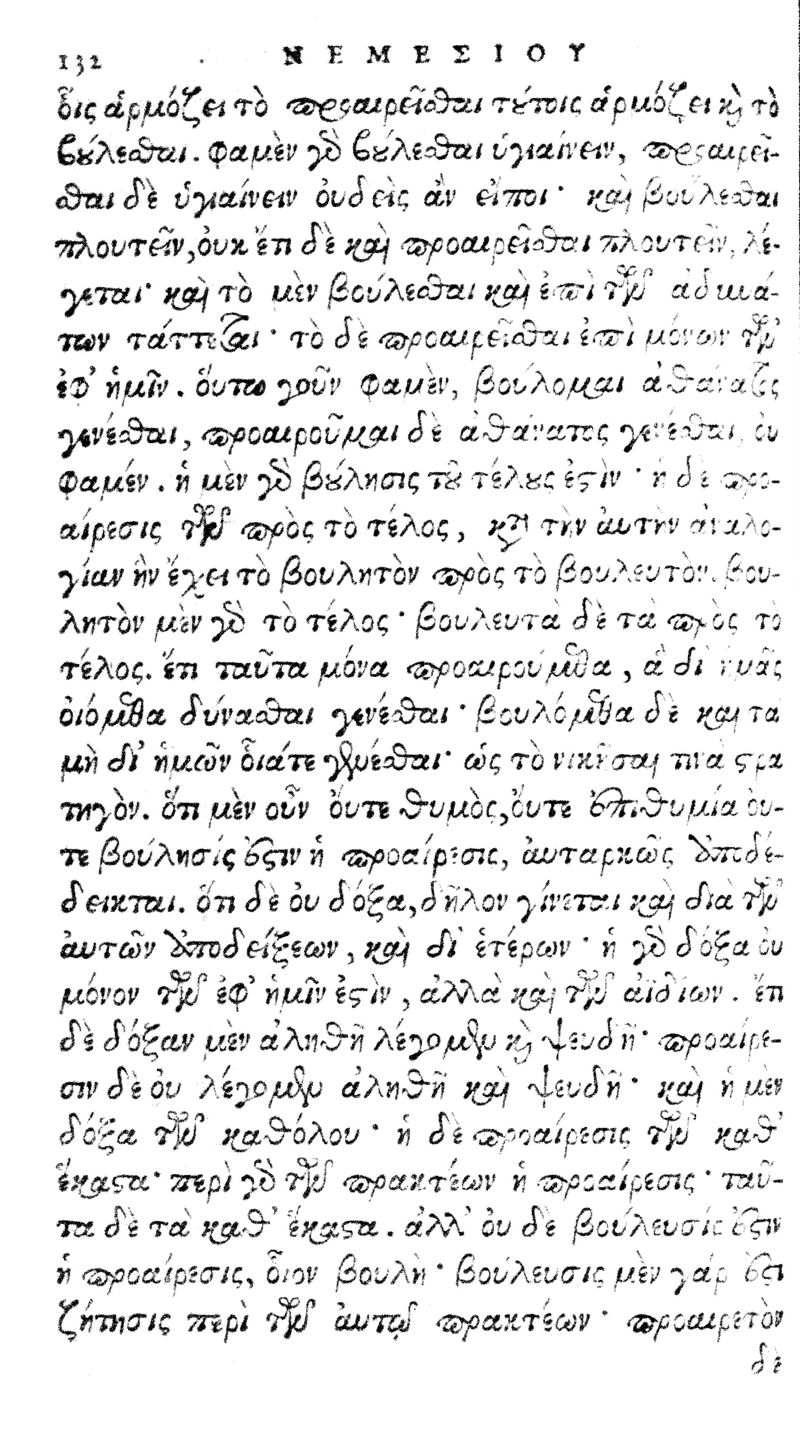 132 ΝΕΜΕΣΙΟΥ
οἷς ἁρμόζει τὸ προαιρεῖσθαι τούτοις ἁρμόζει καὶ τὸ
βούλεσθαι. φαμὲν γὸ βούλεσθαι ὑγιαίνειν, προαιρεῖ-
σθαι δὲ ὑγιαίνειν οὐδεὶς ἂν εἴποι· καὶ βούλεσθαι
πλουτεῖν, οὐκ ἔτι δὲ καὶ προαιρεῖσθαι πλουτεῖν, λέ-
γεται· καὶ τὸ μὲν βούλεσθαι καὶ ἐπὶ τῶν ἀδυνά-
των τάττεται· τὸ δὲ προαιρεῖσθαι ἐπὶ μόνων τῶν
ἐφ' ἡμῖν. ὅυτω γοῦν φαμὲν, βούλομαι ἀθάνατος
γενέσθαι, προαιροῦμαι δὲ ἀθάνατος γενέσθαι, οὐ
φαμέν. ἡ μὲν γὸ βούλησις τοῦ τέλους ἐστὶν· ἡ δὲ προ-
αίρεσις τῶν πρὸς τὸ τέλος, κατὰ τὴν ἀυτὴν ἀναλο-
γίαν ἣν ἔχει τὸ βουλητὸν πρὸς τὸ βουλευτὸν. βου-
λητὸν μὲν γὸ τὸ τέλος· βουλευτὰ δὲ τὰ πρὸς τὸ
τέλος. ἔτι ταῦτα μόνα προαιρούμεθα, ἃ δι' ἡμᾶς
οἰόμεθα δύνασθαι γενέσθαι· βουλόμεθα δὲ καὶ τὰ
μὴ δι' ἡμῶν οἷά τε γενέσθαι· ὡς τὸ νικῆσαι τινὰ στρα
τηγὸν. ὅτι μὲν οὖν ὄυτε θυμὸς, ὄυτε ἐπιθυμία ὄυ-
τε βούλησίς ἐστιν ἡ προαίρεσις, ἀυταρκῶς ἀποδέ-
δεικται. ὅτι δὲ οὐ δόξα, δῆλον γίνεται καὶ διὰ τῶν
ἀυτῶν ἀποδείξεων, καὶ δι' ἑτέρων· ἡ γὸ δόξα οὐ
μόνον τῶν ἐφ' ἡμῖν ἐστὶν, ἀλλὰ καὶ τῶν ἀϊδίων. ἔτι
δὲ δόξαν μὲν ἀληθῆ λέγομεν καὶ ψευδῆ· προαίρε-
σιν δὲ οὐ λέγομεν ἀληθῆ καὶ ψευδῆ· καὶ ἡ μὲν
δόξα τῶν καθόλου· ἡ δὲ προαίρεσις τῶν καθ'
ἕκαστα· περὶ γὸ τῶν πρακτέων ἡ προαίρεσις· ταῦ-
τα δὲ τὰ καθ' ἕκαστα. ἀλλ' οὐ δὲ βούλευσίς ἐστιν
ἡ προαίρεσις, οἷον βουλὴ· βούλευσις μὲν γάρ ἐστι
ζήτησις περὶ τῶν ἀυτῷ πρακτέων· προαιρετὸν
δὲ